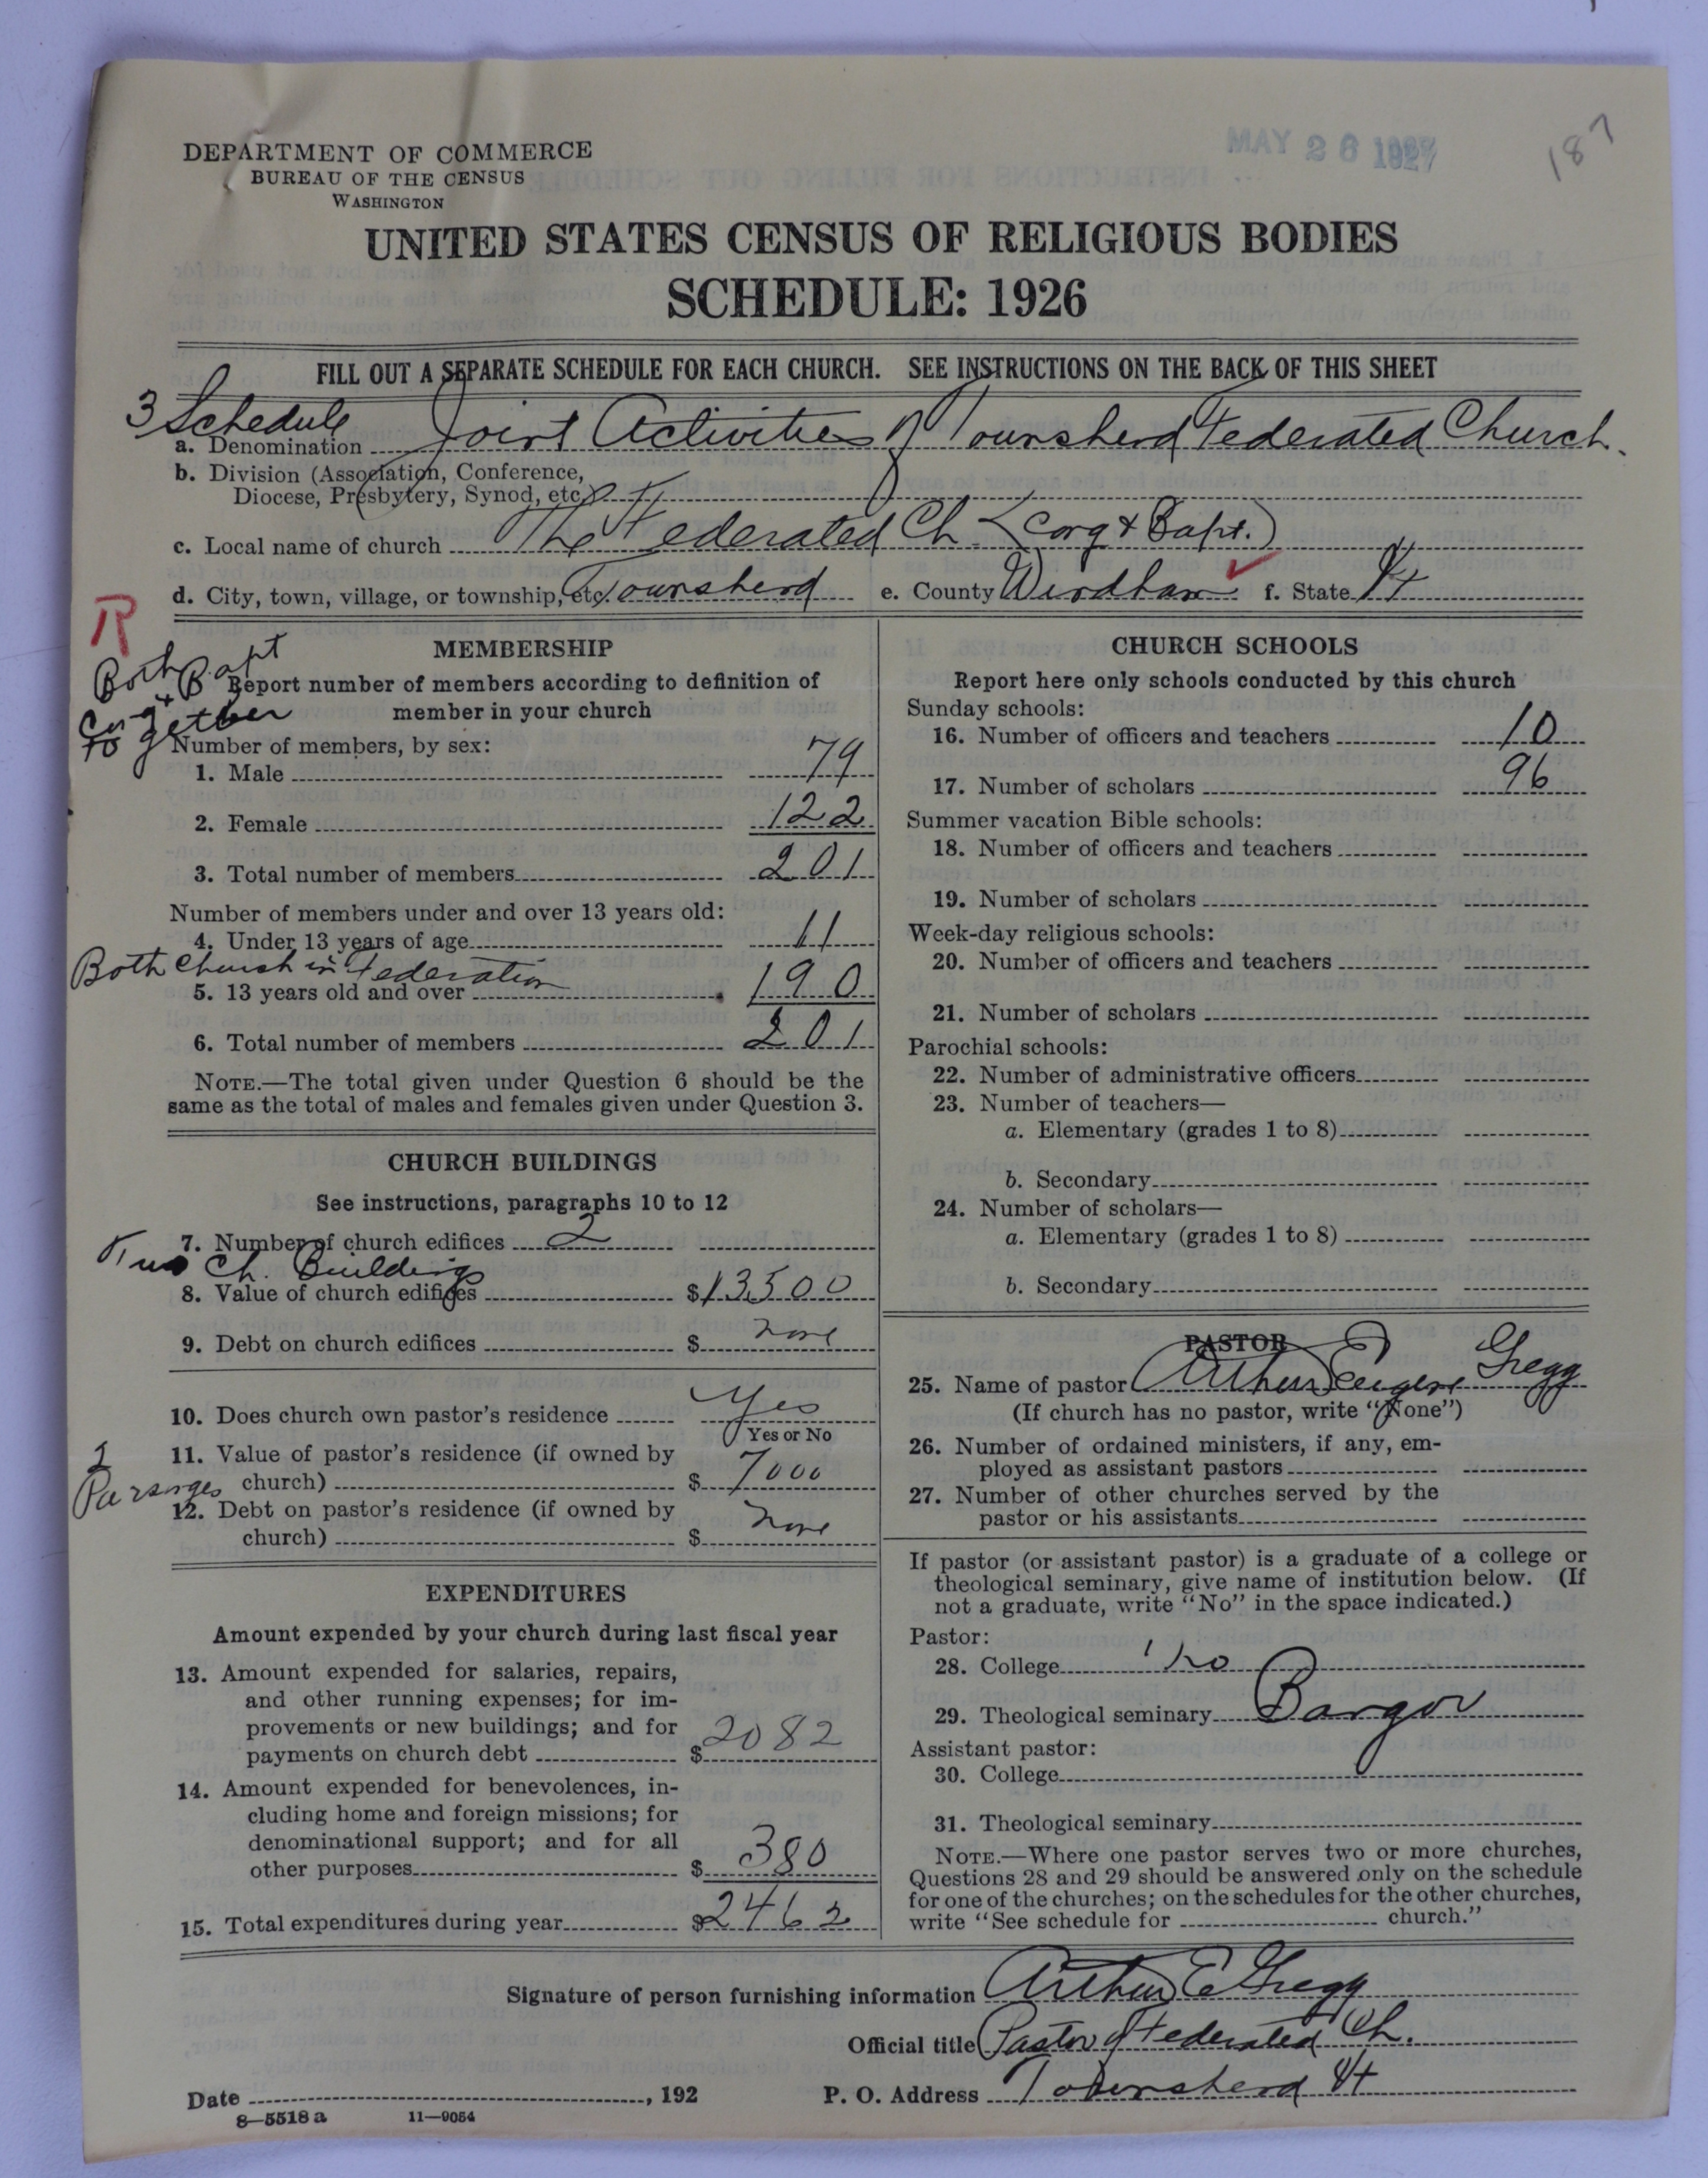 MAY 26 1927
187
DEPARTMENT OF COMMERCE
BUREAU OF THE CENSUS
WASHINGTON
UNITED STATES CENSUS OF RELIGIOUS BODIES
SCHEDULE: 1926
FILL OUT A SEPARATE SCHEDULE FOR EACH CHURCH. SEE INSTRUCTIONS ON THE BACK OF THIS SHEET
3 Schedule
a. Denomination Joint Activities of Townshend Federated Church.
b. Division (Association, Conference,
Diocese, Presbytery, Synod, etc.)
c. Local name of church The Federated Ch. (Cong & Bapt.)
d. City, town, village, or township, etc. Townshend e. County Windham f. State Vt
R
Both Bapt
& Cong
together
MEMBERSHIP
Report number of members according to definition of
member in your church
Number of members, by sex:
1. Male 79
2. Female 122
3. Total number of members 201
Number of members under and over 13 years old:
4. Under 13 years of age 11
Both Church in Federation
5. 13 years old and over 190
6. Total number of members 201
NOTE.—The total given under Question 6 should be the
same as the total of males and females given under Question 3.
CHURCH BUILDINGS
See instructions, paragraphs 10 to 12
7. Number of church edifices 2
Two Ch. Buildings
8. Value of church edifices $13500
9. Debt on church edifices $ none
10. Does church own pastor's residence Yes
Yes or No
2
Parsonges
11. Value of pastor's residence (if owned by
church) $ 7000
12. Debt on pastor's residence (if owned by
church) $ none
EXPENDITURES
Amount expended by your church during last fiscal year
13. Amount expended for salaries, repairs,
and other running expenses; for im-
provements or new buildings; and for
payments on church debt $2082
14. Amount expended for benevolences, in-
cluding home and foreign missions; for
denominational support; and for all
other purposes $ 380
15. Total expenditures during year $2462
CHURCH SCHOOLS
Report here only schools conducted by this church
Sunday schools:
16. Number of officers and teachers 10
17. Number of scholars 96
Summer vacation Bible schools:
18. Number of officers and teachers
19. Number of scholars
Week-day religious schools:
20. Number of officers and teachers
21. Number of scholars
Parochial schools:
22. Number of administrative officers
23. Number of teachers—
a. Elementary (grades 1 to 8)
b. Secondary
24. Number of scholars—
a. Elementary (grades 1 to 8)
b. Secondary
PASTOR
25. Name of pastor Arthur Eugene Gregg
(If church has no pastor, write "None")
26. Number of ordained ministers, if any, em-
ployed as assistant pastors
27. Number of other churches served by the
pastor or his assistants
If pastor (or assistant pastor) is a graduate of a college or
theological seminary, give name of institution below. (If
not a graduate, write "No" in the space indicated.)
Pastor:
28. College No
29. Theological seminary Bangor
Assistant pastor:
30. College
31. Theological seminary
NOTE.—Where one pastor serves two or more churches,
Questions 28 and 29 should be answered only on the schedule
for one of the churches; on the schedules for the other churches,
write "See schedule for church."
Signature of person furnishing information Arthur E Gregg
Official title Pastor of Federated Ch.
Date , 192 P. O. Address Townshend Vt
8—5518 a 11—9054